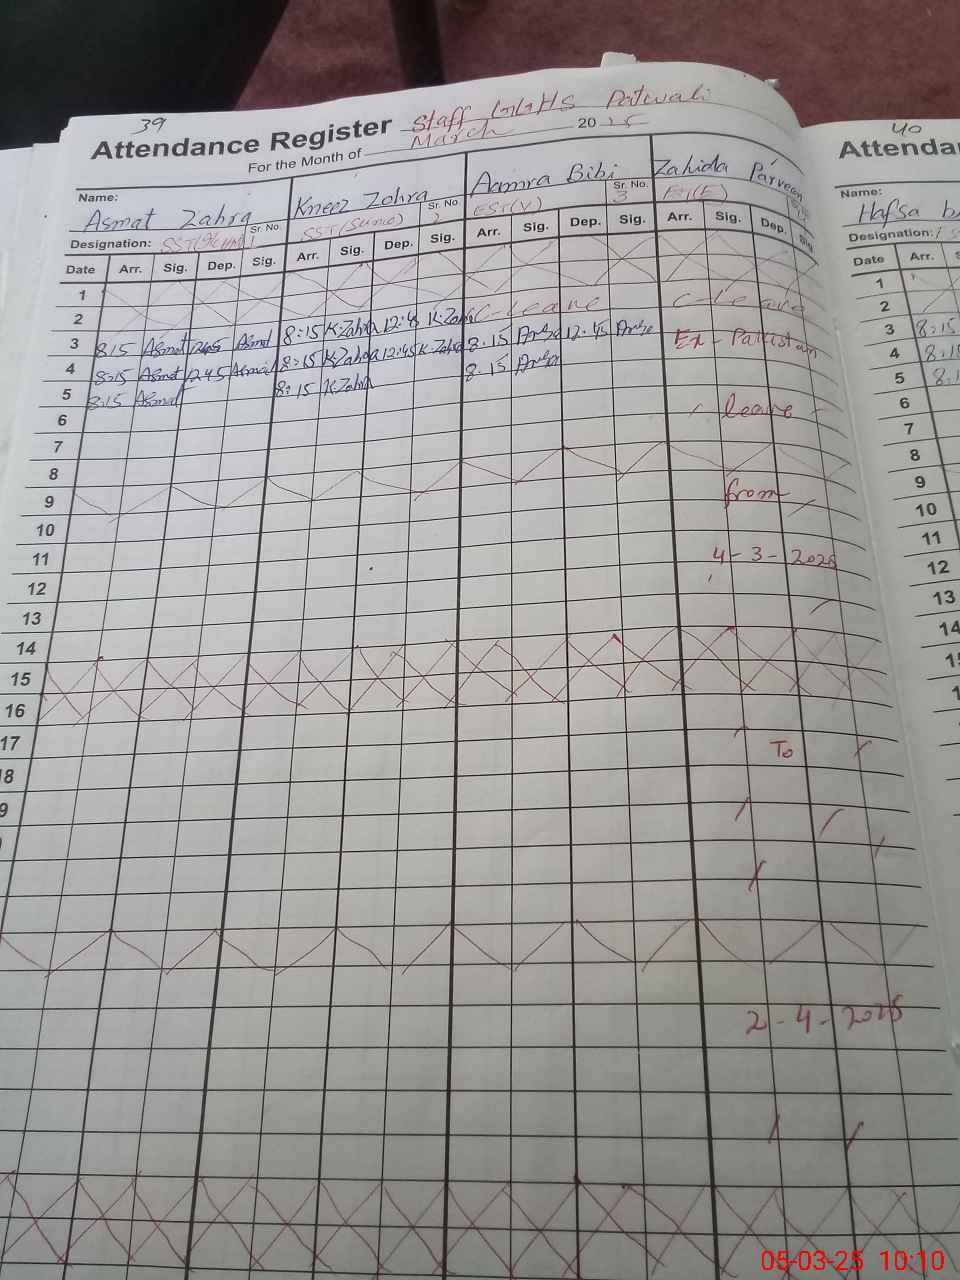 39
Attendance Register Staff GGHS Patwali
For the Month of March 2025
Name: Asmat Zahra Kneez Zohra Aamra Bibi Zahida Parveen
Designation: Sr. No. 1 Sr. No. 2 EST(V) Sr. No. 3
Date Arr. Sig. Dep. Sig. Arr. Sig. Dep. Sig. Arr. Sig. Dep. Sig. Arr. Sig. Dep. Sig.
1
2
3 8:15 Asmat 12:45 Asmat 8:15 K.Zahra 12:45 K.Zahra C-Leave C-Leave
4 8:15 Asmat 12:45 Asmat 8:15 K.Zahra 12:45 K.Zahra 8:15 12:45 Ex-Pakistan
5 8:15 Asmat 8:15 K.Zahra 8:15
6 leave
7
8
9 from
10
11 4-3-2025
12
13
14
15
16
17 To
18
9
2-4-2025
40
Attenda
Name:
Hafsa
Designation:
Date Arr.
1
2
3 8:15
4 8:15
5 8:1
6
7
8
9
10
11
12
13
14
15
1
05-03-25 10:10